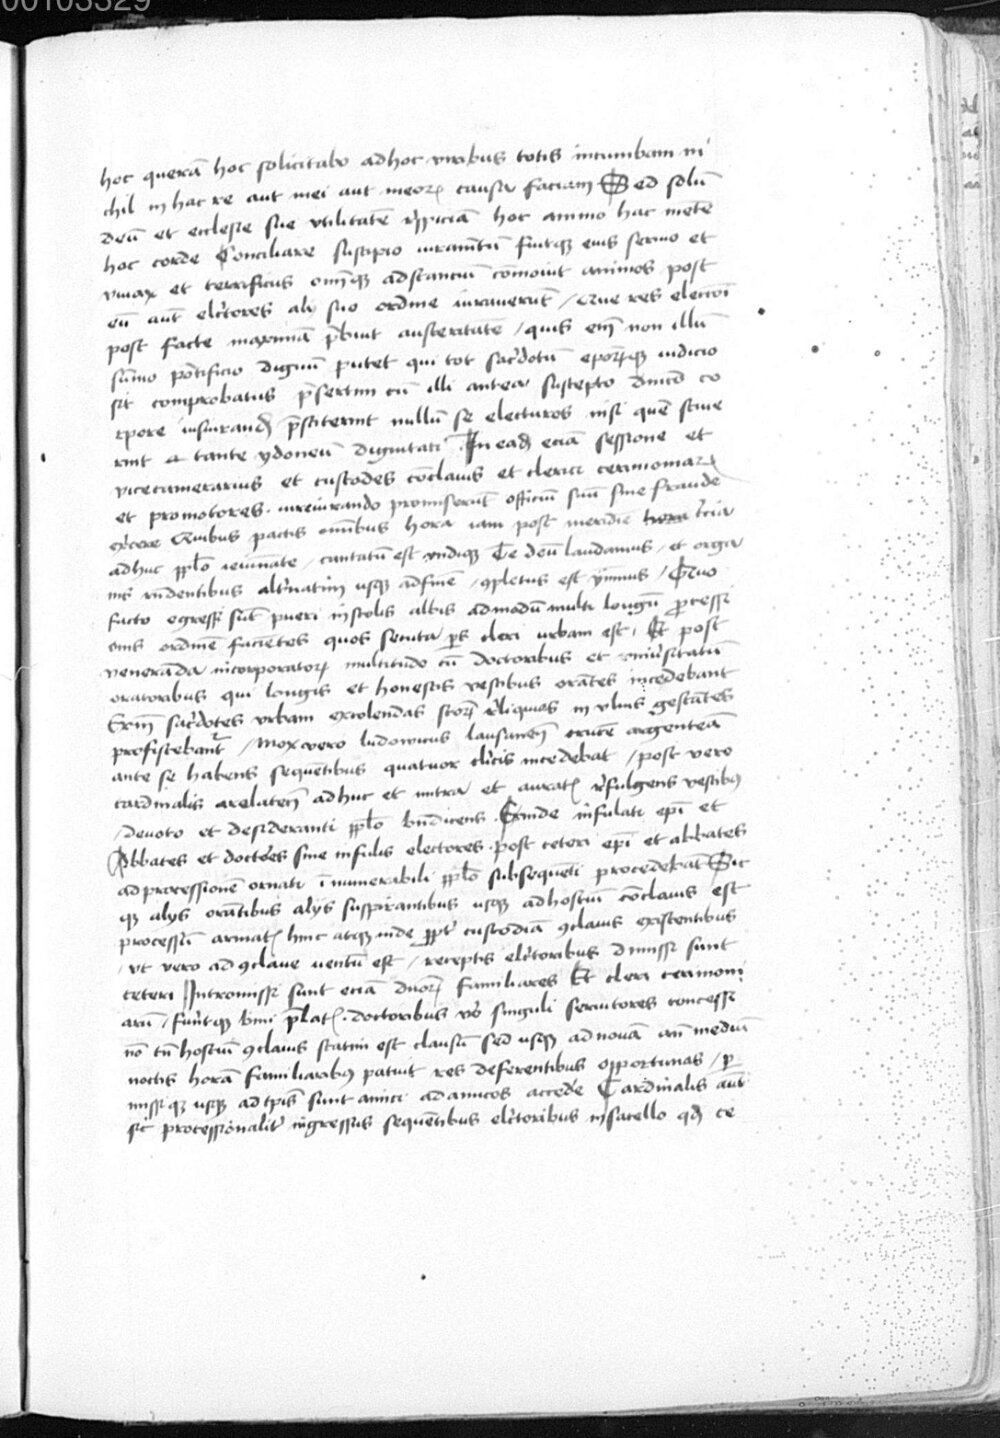 00103329
hoc querā hoc solicitabo ad hoc viribus totis incumbam ni
chil in hac re aut mei aut meoꝝ causa faciam Sed solū
deū et ecclesie sue vtilitatē rꝰpiciā hoc animo hac mēte
hoc corde Conciliare suscipio iuramētū fuitqꝫ eius sermo et
viuax et terrificus om̄iqꝫ adstanciū cōmouit animos post
eū aūt elc̄tores alij suo ordine iurauerūt / Que res electōi
post facte maximā p̄buit austeritatē / quis em̄ non illū
sūmo pōtificio dignū putet qui tot sac̄dotū ep̄orꝫqꝫ iudicio
sit comprobatus p̄sertim cū illi antea suscepto dn̄ico co
rpore iusiurandꝫ p̄stiterint nullū se electuros nisi quē sciue
rint tante ydoneū dignitati In eadꝫ eciā sessione et
vicecamerarius et custodes cōclauis et clerici cerimoniaꝝ
et promotores . iureiurando promiserūt officiū suū sine fraude
ex̄cere Quibus pactis om̄ibus hora iam post meridiē hora t̄cia
adhuc ppl̄o ieiunāte / cantatū est vndiqꝫ Te deū laudamus / et orga
nis rn̄dentibus alt̄natim usqꝫ ad finē / ꝯpletus est ymnus / Quo
facto egressi sūt pueri in stolis albis admodū multi longū p̄cessi
onis ordinē faciētes quos secuta ps̄ cleri urbam est / Et post
veneranda incorporatoꝝ multitudo cū doctoribus et vniūsitatū
oratoribus qui longis et honestis vestibus orātes incedebant
Exin sac̄dotes vrbam excolendas sctoꝝ rl̄iquias in vlnis gestātes
profistebant̄ / Mox vero ludouicus lausaneñ crucē argenteā
ante se habens sequētibus quatuor cl̄icis incedebat / post vero
cardinalis arelateñ adhuc et mitra et auratꝭ rꝰfulgens vestibꝫ
/ deuoto et desideranti ppl̄o bn̄dicens . Exinde infulati ep̄i et
Abbates et doctōes sine infulis electores . post ceteri ep̄i et abbates
ad processionē ornati īnumerabili ppl̄o subsequēti procedebāt Sic
qꝫ alys orātibus alys suspirantibus usqꝫ ad hostiū cōclauis est
processū armatꝭ hinc atqꝫ inde ppt̄ custodiā ꝯclauis existentibus
/ vt vero ad ꝯclaue uentū est / receptis elc̄toribus dimissi sunt
ceteri Intromissi sunt eciā duoꝝ familiares Et cleri cerimoni
arū / fuitqꝫ bini p̄latꝭ . doctoribus vō singuli seruitores concessi
nō tn̄ hostiū ꝯclauis statim est clausū sed usqꝫ ad nouā añ mediū
noctis horā familiaribꝫ patuit res deferentibus opportunas / p̄
missiqꝫ usqꝫ ad tp̄is sunt amici ad amicos accedē Cardinalis aut̄
sic processionalit̄ ingressus sequētibus elc̄toribus in sacello qdꝫ ce